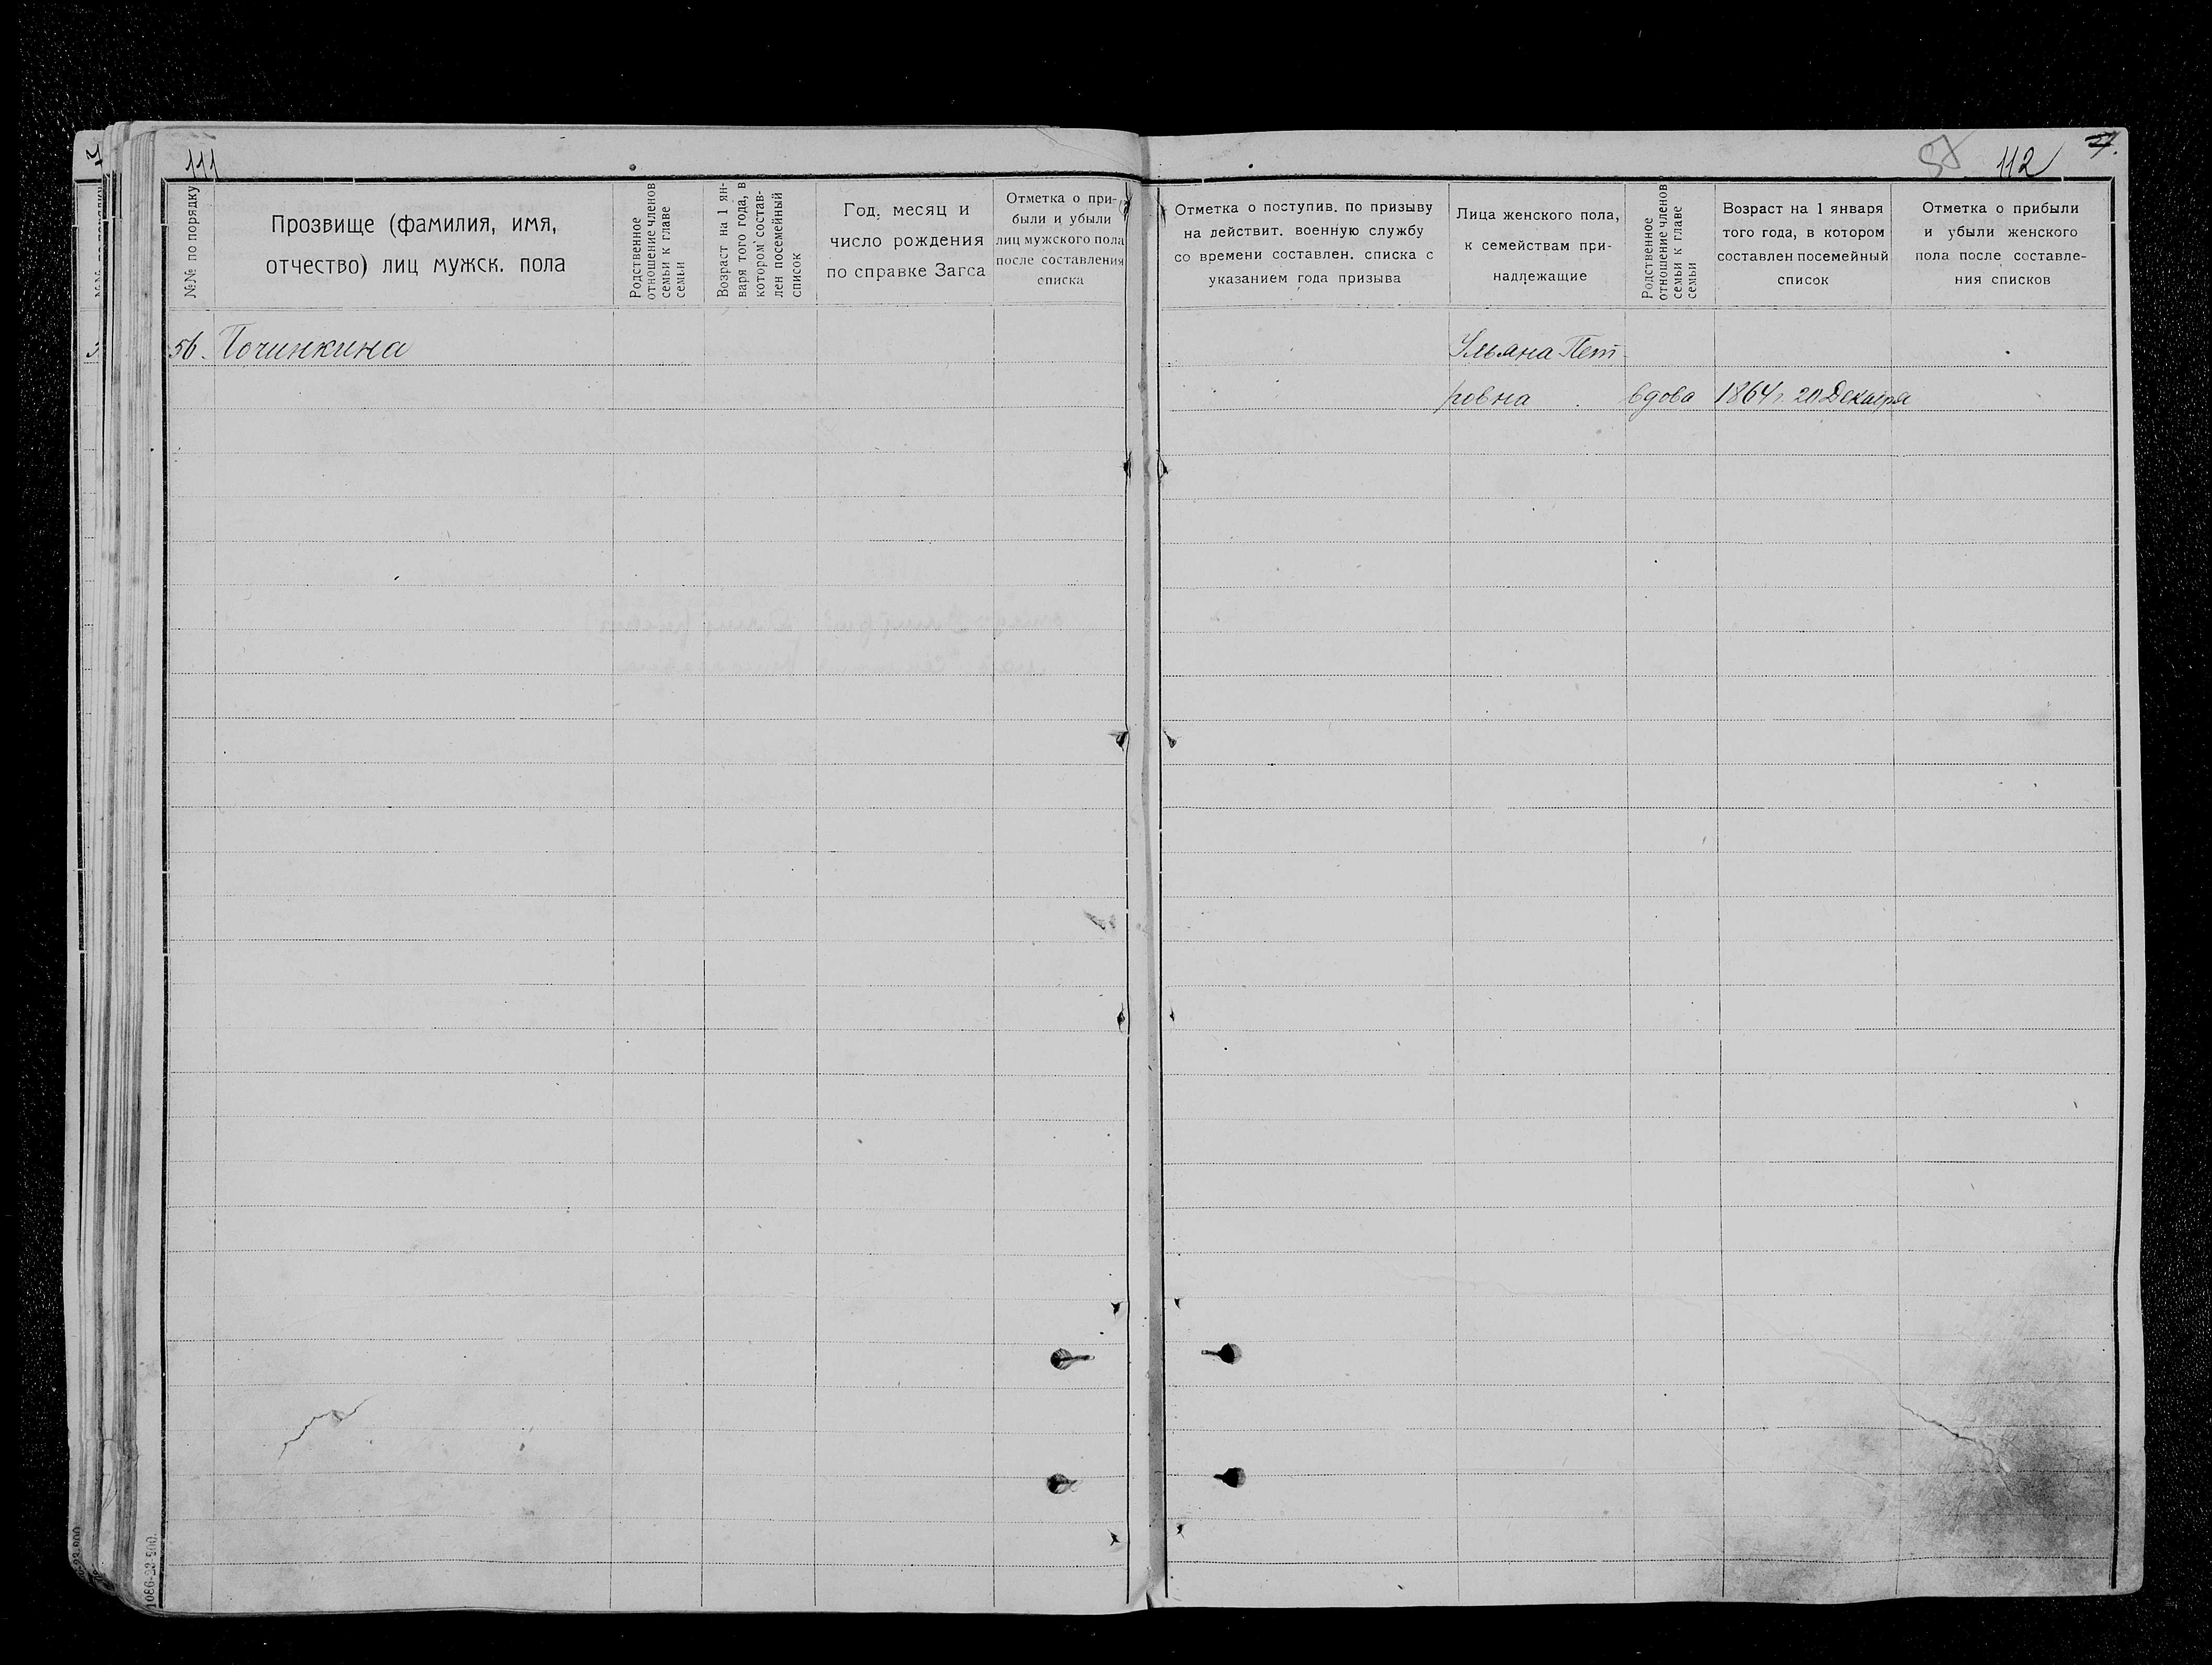 111
№№ по порядку
Прозвище (фамилия, имя,
отчество) лиц мужск. пола
Родственное
отношение членов
семьи к главе
семьи
Возраст на 1 ян-
варя того года, в
котором состав-
лен посемейный
список
Год, месяц и
число рождения
по справке Загса
Отметка о при-
были и убыли
лиц мужского пола
после составления
списка
56. Починкина
1086-23-500.
112
Отметка о поступив. по призыву
на действит. военную службу
со времени составлен. списка с
указанием года призыва
Лица женского пола,
к семействам при-
надлежащие
Родственное
отношение членов
семьи к главе
семьи
Возраст на 1 января
того года, в котором
составлен посемейный
список
Отметка о прибыли
и убыли женского
пола после составле-
ния списков
Ульяна Пет-
ровна вдова 1864 г. 20 Декабря